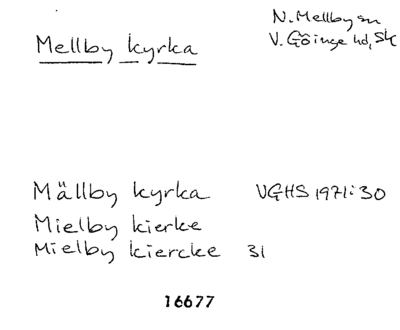 N. Mellby sn
V. Göinge hd, Sk
Mellby kyrka
Mällby kyrka VGHS 1971:30
Mielby kierke
Mielby kiercke 31
16677